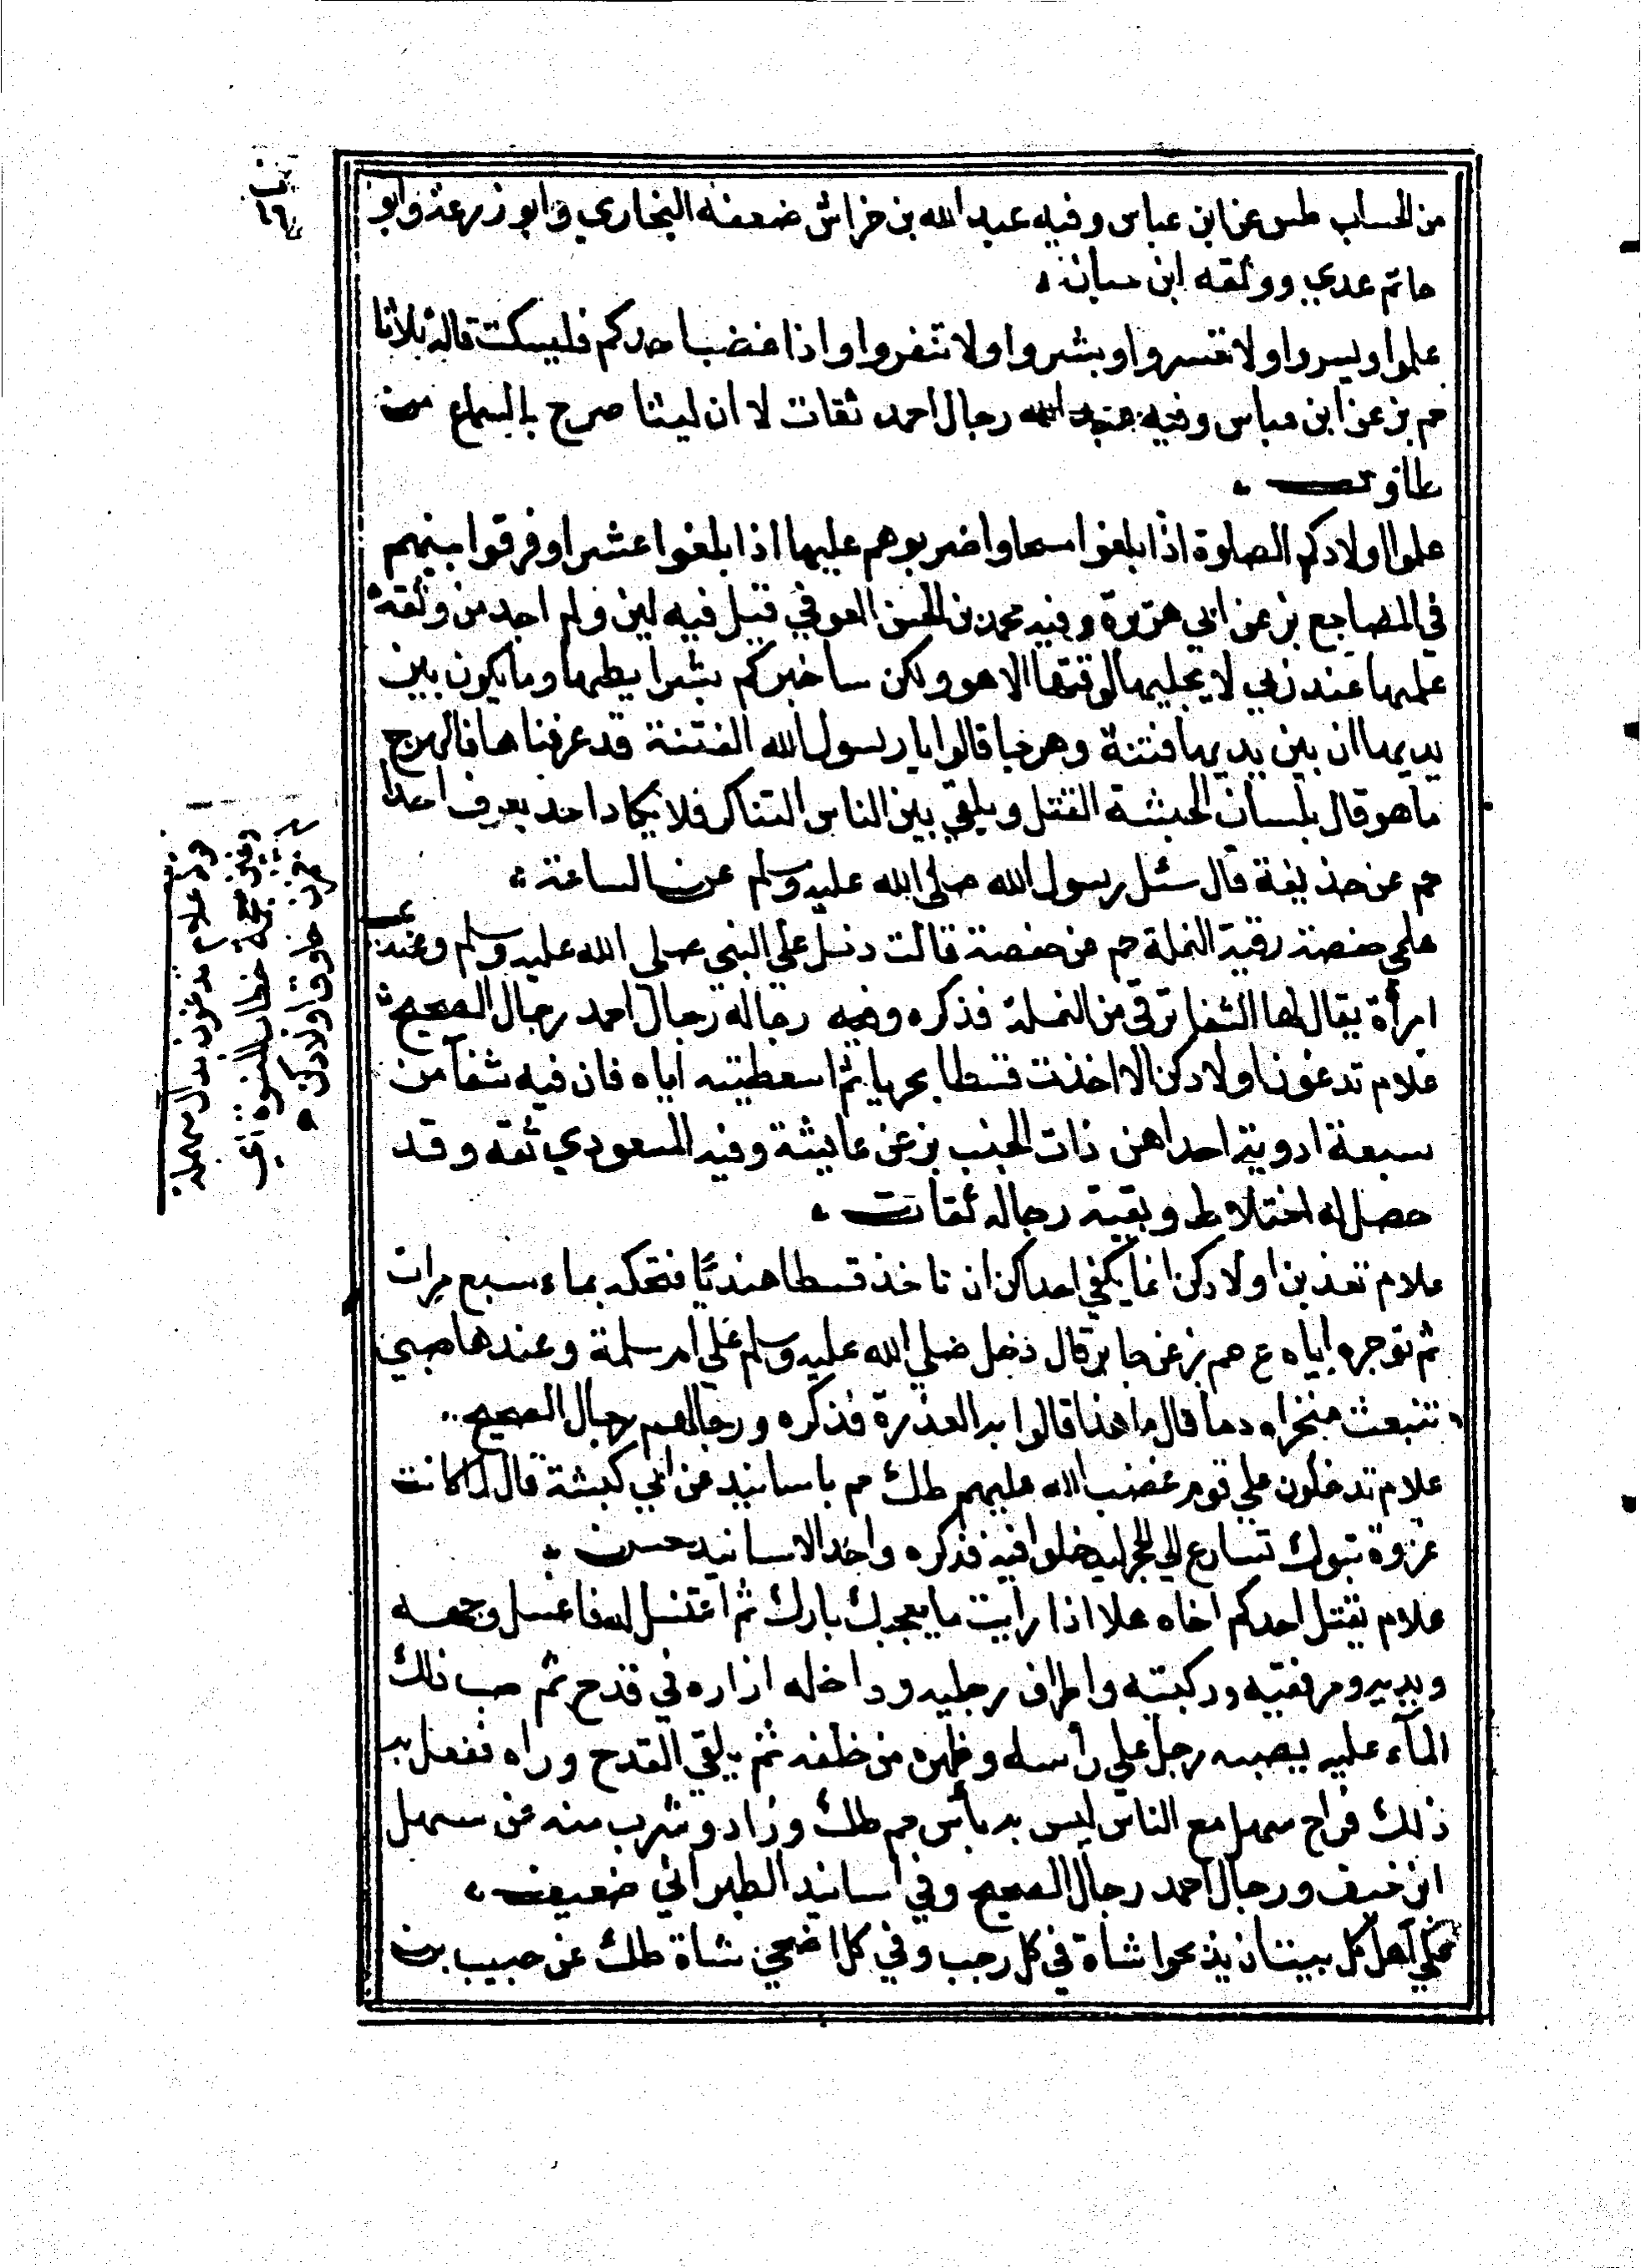 من الحساب طس عن ابن عباس وفيه عبد الله بن خراش ضعفه البخاري وابو زرعة وابو
حاتم عدي ووثقه ابن حبان
علموا ويسروا ولا تعسروا وبشروا ولا تنفروا واذا غضب احدكم فليسكت قاله ثلاثا
حم بز عن ابن عباس وفيه رجال احمد ثقات لا ان ليثا صرح بالسماع من
طاوس
علموا اولادكم الصلوة اذا بلغوا سبعا واضربوهم عليها اذا بلغوا عشرا وفرقوا بينهم
في المضاجع بز عن ابي هريرة وفيه محمد بن الحسن العوفي قيل فيه لين ولم اجد من وثقه
علمها عند ربي لا يجليها لوقتها الا هو ولكن ساخبركم بشرا يطها وما يكون بين
يديها ان بين يديها فتنة وهرجا قالوا يا رسول الله الفتنة قد عرفناها فالهرج
ما هو قال بلسان الحبشة القتل ويلقي بين الناس التناكر فلا يكاد احد يعرف احدا
حم عن حذيفة قال سئل رسول الله صلي الله عليه وسلم عن الساعة
علمي حفصة رقية النملة حم عن حفصة قالت دخل علي النبي صلي الله عليه وسلم وعند
امرأة يقال لها الشفا ترقي من النملة فذكره وفيه رجاله رجال احمد رجال الصحيح
علام تدغرن اولادكن الا اخذت قسطا بحريا ثم اسعطيته اياه فان فيه شفآ من
سبعة ادوية احداهن ذات الجنب بز عن عايشة وفيه المسعودي ثقه وقد
حصل له اختلاط وبقية رجاله ثقات
علام تعذبن اولادكن انما يكفي احداكن ان تاخذ قسطا هنديًا فتحكه بماء سبع مرات
ثم توجره اياه ع حم بز عن جابر قال دخل صلي الله عليه وسلم علي ام سلمة وعندها صبي
تنبعث منخراه دما قال ما هذا قالوا به العذرة فذكره ورجالهم رجال الصحيح
علام تدخلون علي قوم غضب الله عليهم طك حم باسانيد عن ابي كبشة قال لما كانت
غزوة تبوك تسارع الي الحجر ليدخلوا فيه فذكره واحد الاسانيد حسن
علام يقتل احدكم اخاه هلا اذا رايت ما يعجبك بارك ثم اغتسل له فاغسل وجهه
ويديه ومرفقيه وركبتيه واطراف رجليه وداخله ازاره في قدح ثم صب ذلك
المآء عليه يصبه رجل علي رأسه وظهره من خلفه ثم يلقي القدح وراه ففعل به
ذلك فراح سهل مع الناس ليس به بأس حم طك وزاد وشرب منه عن سهل
ابن حنيف ورجال احمد رجال الصحيح وفي اسانيد الطبراني ضعيف
علي اهل كل بيت ان يذبحوا شاة في كل رجب وفي كل اضحي شاة طك عن حبيب بن